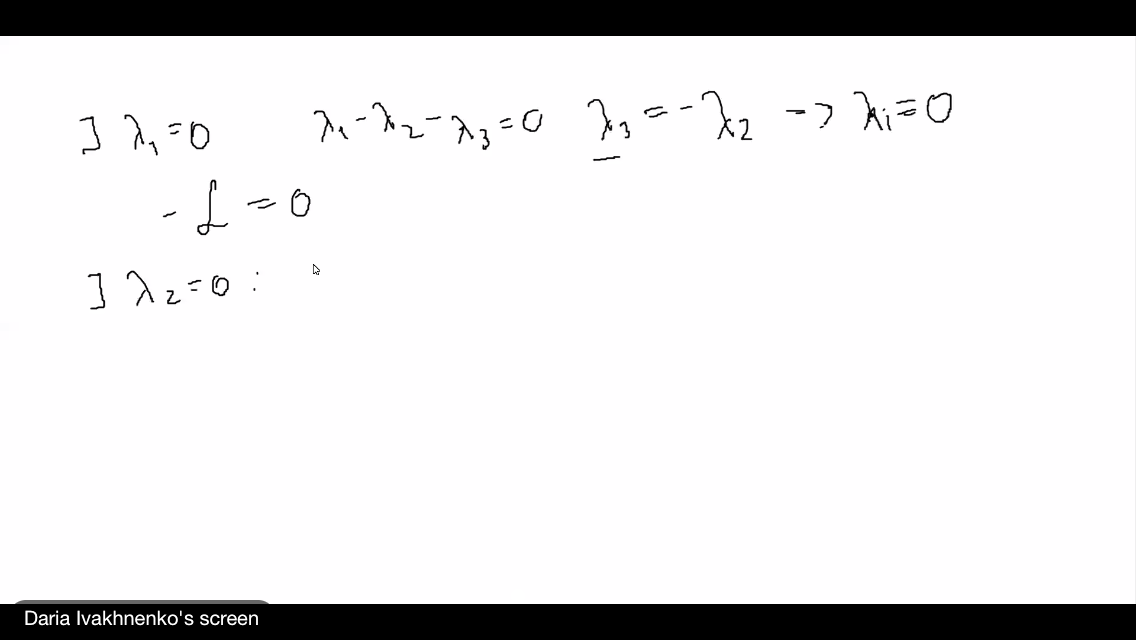 ] λ₁ = 0 λ₁ - λ₂ - λ₃ = 0 λ₃ = - λ₂ -> λᵢ = 0
- ℒ = 0
] λ₂ = 0 :
Daria Ivakhnenko's screen